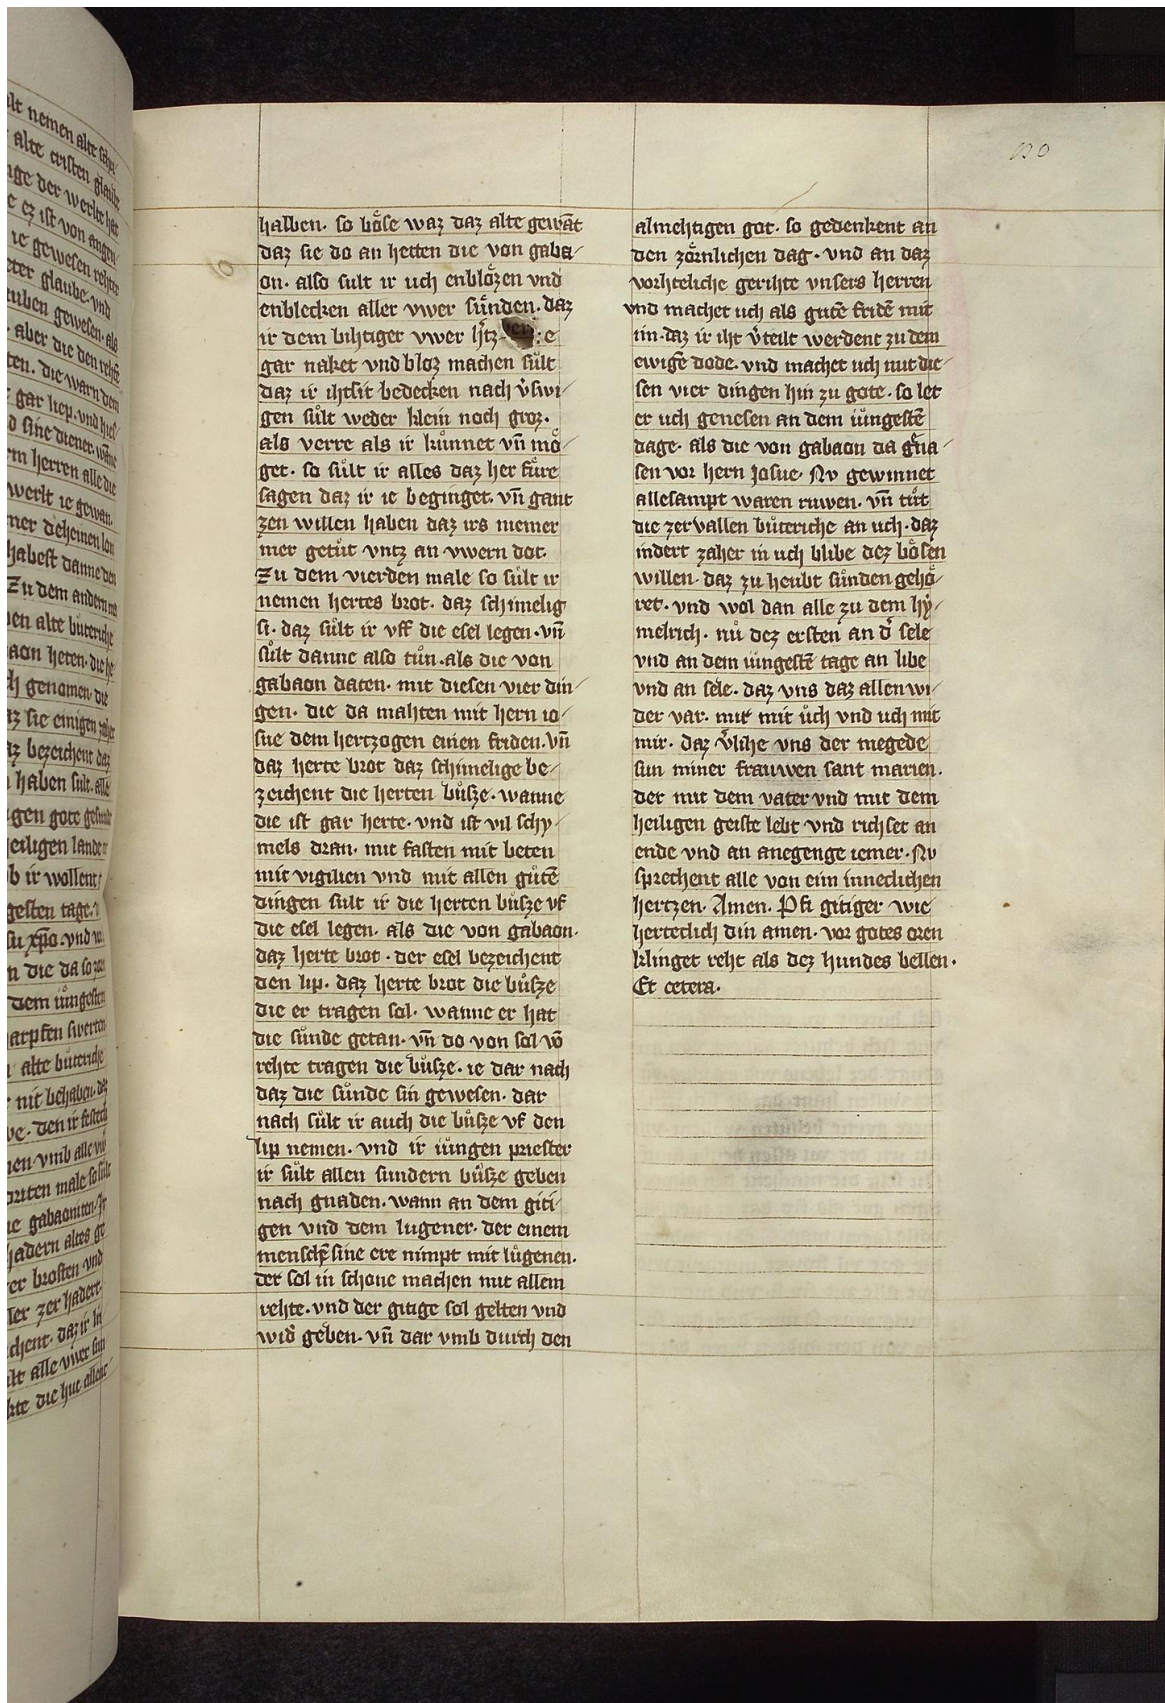 130
halben. so boͤse waz daz alte gewāt
daz sie do an hetten die von gaba⸗
on. also sult ir uch enbloͤzen vnd
enblecken aller vwer suͤnden. daz
ir dem bihtiger vwer
gar naket vnd bloz machen suͤlt
daz ir ihtsit bedecken nach v̓swi⸗
gen suͤlt weder klein noch groz.
als verre als ir kuͤnnet vn̄ moͤ⸗
get. so suͤlt ir alles daz her fuͤre
sagen daz ir ie beginget. vn̄ gant
zen willen haben daz irs niemer
mer getuͤt vntz an vwern dot.
Zu dem vierden male so suͤlt ir
nemen hertes brot. daz schimelig
si. daz suͤlt ir vff die esel legen. vn̄
suͤlt danne also tuͤn. als die von
gabaon daten. mit diesen vier din⸗
gen. die da mahten mit hern io⸗
sue dem hertzogen einen friden. vn̄
daz herte brot daz schimelige be⸗
zeichent die herten buͤsze. wanne
die ist gar herte. vnd ist vil schy⸗
mels dran. mit fasten mit beten
mit vigilien vnd mit allen guͤtē
dingen sult ir die herten buͤsze vf
die esel legen. als die von gabaon.
daz herte brot. der esel bezeichent
den lip. daz herte brot die buͤsze
die er tragen sol. wanne er hat
die suͤnde getan. vn̄ do von sol vō
rehte tragen die buͤsze. ie dar nach
daz die suͤnde sin gewesen. dar
nach suͤlt ir auch die buͤsze vf den
lip nemen. vnd ir iuͤngen priester
ir suͤlt allen sundern buͤsze geben
nach gnaden. wann an dem giti⸗
gen vnd dem lugener. der einem
menschē sine ere nimpt mit luͤgenen.
der sol in schone machen mit allem
rehte. vnd der gitige sol gelten vnd
wid̓ geben. vn̄ dar vmb durch den
almehtigen got. so gedenkent an
den zoͤrnlichen dag. vnd an daz
vorhteliche gerihte vnsers herren
vnd machet uch als gutē fridē mit
im. daz ir iht v̓teilt werdent zu dem
ewigē dode. vnd machet uch mit die⸗
sen vier dingen hin zu gote. so let
er uch genesen an dem iuͤngestē
dage. als die von gabaon da g̓na⸗
sen vor hern Josue. Nv gewinnet
allesampt waren ruwen. vn̄ tuͤt
die zervallen buͤteriche an uch. daz
indert zaher in uch blibe dez boͤsen
willen. daz zu heubt suͤnden gehoͤ⸗
ret. vnd wol dan alle zu dem hy⸗
melrich. nuͤ dez ersten an d̓ sele
vnd an dem iuͤngestē tage an libe
vnd an sele. daz vns daz allen wi⸗
der var. mir mit uͤch vnd uch mit
mir. daz v̓lihe vns der megede
sun miner frauwen sant marien.
der mit dem vater vnd mit dem
heiligen geiste lebt vnd richset an
ende vnd an anegenge iemer. Nv
sprechent alle von eim inneclichen
hertzen. Amen. Pfi gitiger wie
herteclich din amen. vor gotes oren
klinget reht als dez hundes bellen.
Et cetera.